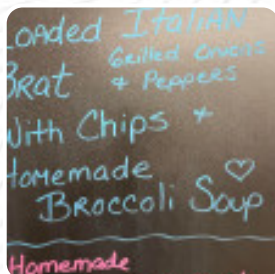 Loaded Italian
Brat Grilled Onions
& Peppers
With Chips &
Homemade
Broccoli Soup
Homemade